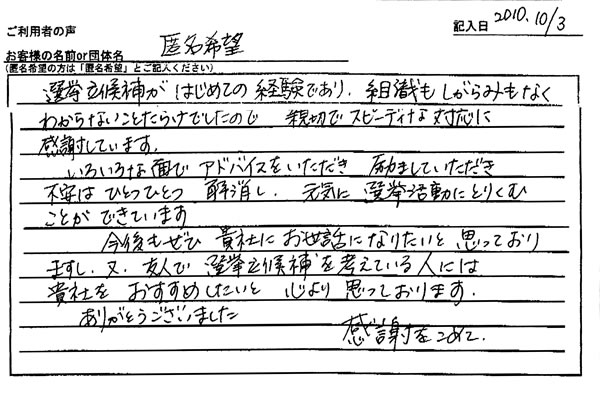 ご利用者の声
記入日 2010.10/3
お客様の名前or団体名 匿名希望
(匿名希望の方は「匿名希望」とご記入ください)
選挙立候補がはじめての経験であり、組織もしがらみもなく
わからないことだらけでしたので 親切でスピーディな対応に
感謝しています。
いろいろな面でアドバイスをいただき 励ましていただき
不安はひとつひとつ 解消し、元気に選挙活動にとりくむ
ことができています
今後もぜひ 貴社にお世話になりたいと思っており
ますし、又、友人で 選挙立候補を考えている人には
貴社を おすすめしたいと 心より思っております。
ありがとうございました
感謝をこめて、